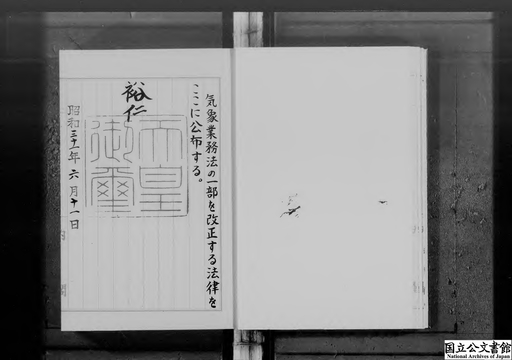 気象業務法の一部を改正する法律を
ここに公布する。
裕仁
天皇
御璽
昭和三十一年六月十一日
国立公文書館
National Archives of Japan